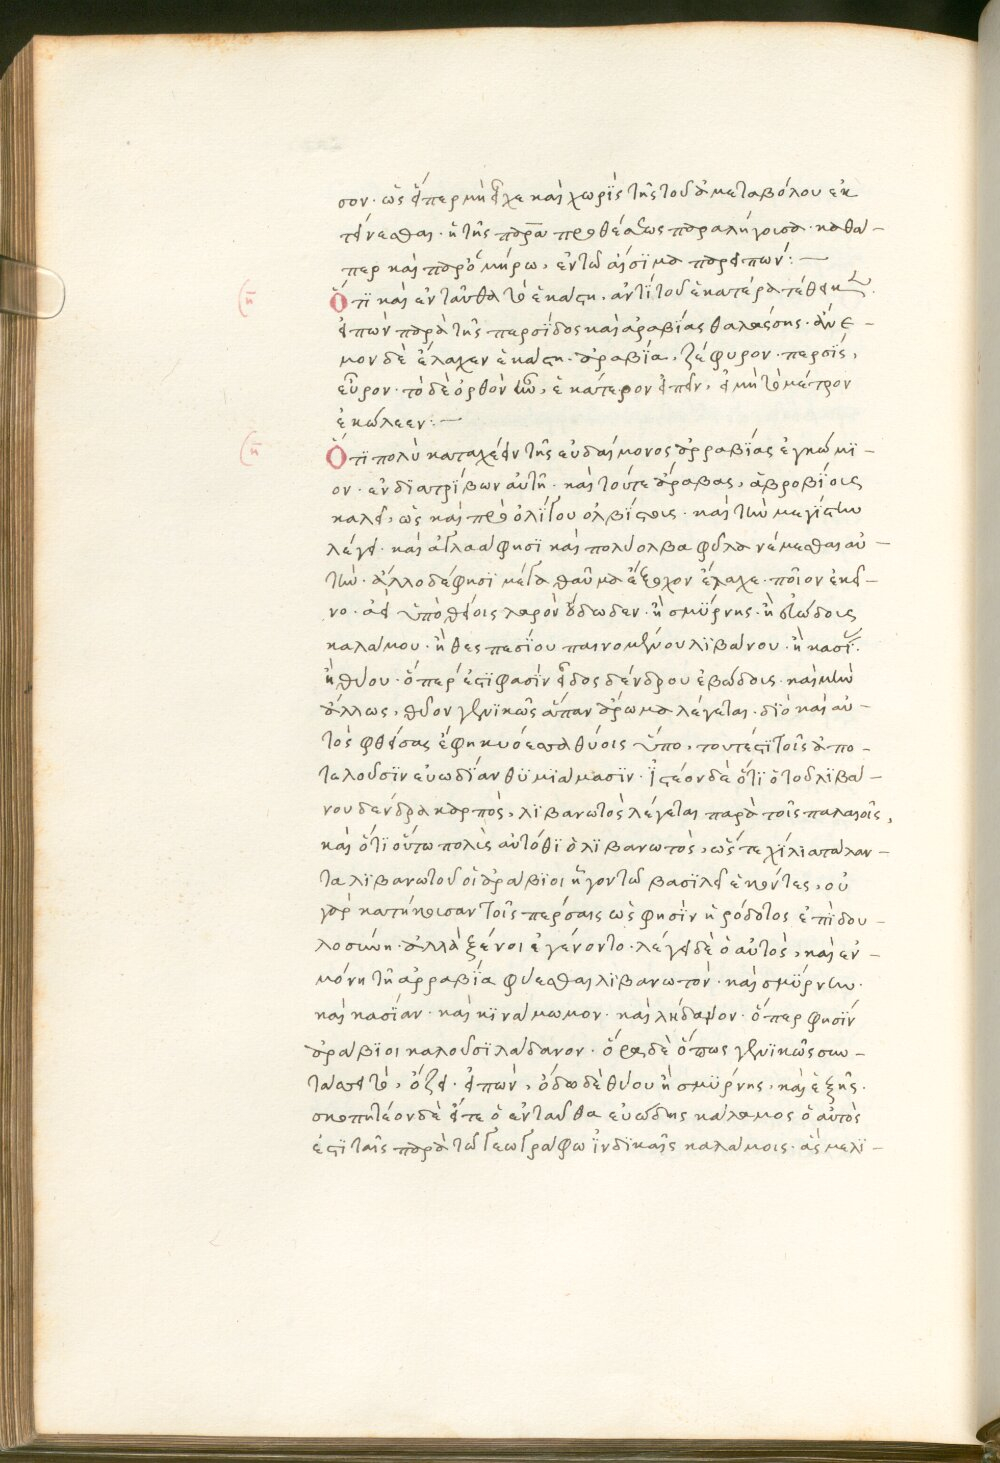 σον· ὡς εἴπερ μὴ εἶχε καὶ χωρὶς τῆς τοῦ ἀμεταβόλου ἐκ
τείνεσθαι· ἢ τῆς παρὰ προθέσεως παραλήγουσα· καθά–
περ καὶ παρ' ὁμήρω, ἐν τῶ αἴσιμα παρειπών:—
Ὅτι καὶ ἐνταῦθα τὸ ἑκάστη, ἀντὶ τοῦ ἑκατέρα τέθεικεν·
εἰπὼν παρὰ τῆς περσίδος καὶ ἀραβίας θαλάσσης· ἄνε–
μον δὲ ἔλαχεν ἑκάστη· ἀραβία, ζέφυρον· περσὶς,
εὖρον· τὸ δὲ ὀρθὸν ἦν, ἑκάτερον εἰπεῖν, εἰ μὴ τὸ μέτρον
ἐκώλυεν:—
Ὅτι πολὺ καταχέειν τῆς εὐδαίμονος ἀρραβίας ἐγκώμι–
ον· ἐνδιατρίβων αὐτῆ· καὶ τούς τε ἄραβας, ἁβροβίους
καλεῖ, ὡς καὶ πρὸ ὀλίγου ὀλβίστους· καὶ τὴν μεγίστην
λέγει· καὶ ἀγλαά φησι καὶ πολύολβα φῦλα νέμεσθαι αὐ–
τήν· ἄλλο δέ φησι μέγα θαῦμα ἔξοχον ἔλαχε· ποῖον ἐκεῖ–
νο· ἀεὶ ὑπὸ θείοις λαρὸν ὄδωδεν· ἢ σμύρνης· ἢ εὐώδους
καλάμου· ἢ θεσπεσίου παινομένου λιβάνου· ἢ κασίης·
ἢ θύου· ὅπέρ ἐστι φασὶν εἶδος δένδρου εὐώδους· καὶ μὴν
ἄλλως, θύον γενικῶς ἅπαν ἄρωμα λέγεται· διὸ καὶ αὐ–
τὸς φθάσας ἔφη κυόεσσα θύοις ὕπο, τουτέστι τοῖς ἀπο–
τελοῦσιν εὐωδίαν θυμιάμασιν· ἰστέον δὲ ὅτι ὁ τοῦ λιβά–
νου δένδρα καρπὸς, λιβανωτὸς λέγεται παρὰ τοῖς παλαιοῖς,
καὶ ὅτι οὕτω πολὺς αὐτόθι ὁ λιβανωτὸς, ὥστε χίλια τάλαν–
τα λιβανωτοῦ οἱ ἀράβιοι ἦγον τῶ βασιλεῖ ἑκόντες, οὐ
γὰρ κατήκουσαν τοῖς πέρσαις ὥς φησὶν ἡρόδοτος ἐπὶ δου–
λοσύνη· ἀλλὰ ξένοι ἐγένοντο· λέγει δὲ ὁ αὐτὸς, καὶ ἐν–
μόνη τῆ ἀρραβία φύεσθαι λιβανωτὸν· καὶ σμύρνην·
καὶ κασίαν· καὶ κινάμωμον· καὶ λήδανον· ὅπερ φησὶν
ἀράβιοι καλοῦσι λάδανον· ὅρα δὲ ὅπως γενικῶς συν–
τάσσει τὸ, ὄζει· εἰπὼν, ὄδωδε θύου ἢ σμύρνης, καὶ ἑξῆς·
σκοπητέον δὲ εἴτε ὁ ἐνταῦθα εὐώδης κάλαμος ὁ αὐτὸς
ἐστι ταῖς παρὰ τῶ γεωγράφω ἰνδικαῖς καλάμοις· ἃς μελι–